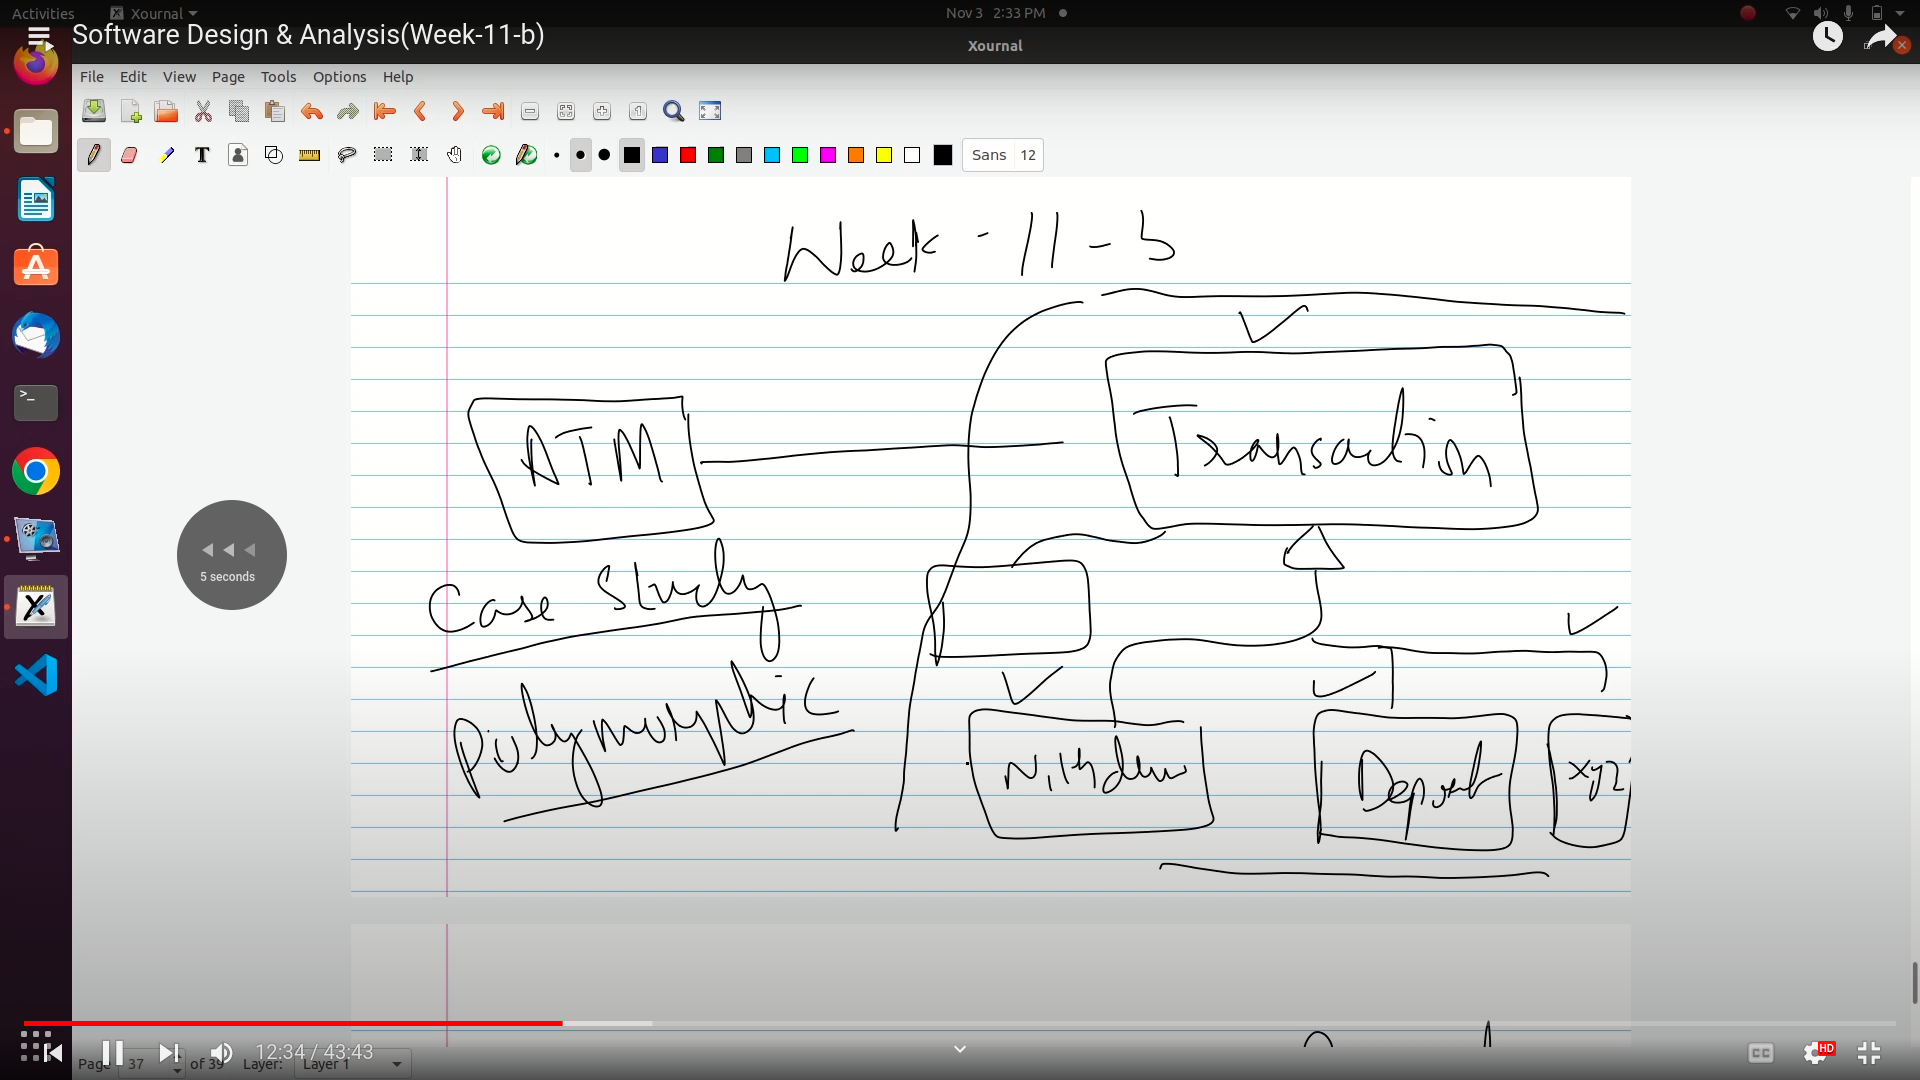 Activities
Xournal
Nov 3 2:33 PM
Software Design & Analysis(Week-11-b)
Xournal
File Edit View Page Tools Options Help
Sans 12
Week - 11 - b
ATM
Transaction
Case Study
Polymorphic
Deposit
xyz
5 seconds
12:34 / 43:43
Page 37 of 39 Layer: Layer 1
CC
HD